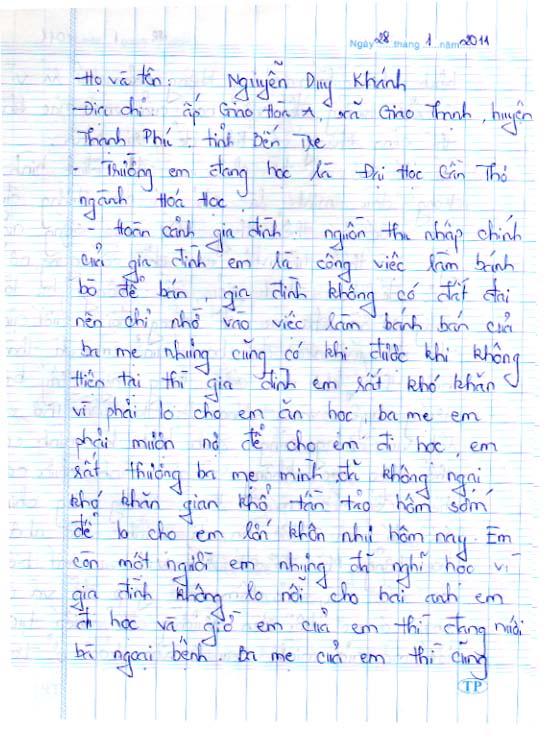 Ngày 28 tháng 1 năm 2011
-Họ và tên : Nguyễn Duy Khánh
-Địa chỉ : ấp Giao Hòa A, xã Giao Thạnh, huyện
Thạnh Phú, tỉnh Bến Tre
- Trường em đang học là Đại Học Cần Thơ
ngành Hoá Học.
- Hoàn cảnh gia đình : nguồn thu nhập chính
của gia đình em là công việc làm bánh
bò để bán, gia đình không có đất đai
nên chỉ nhờ vào việc làm bánh bán của
ba mẹ nhưng cũng có khi được khi không
hiện tại thì gia đình em rất khó khăn
vì phải lo cho em ăn học, ba mẹ em
phải mượn nợ để cho em đi học, em
rất thương ba mẹ mình đã không ngại
khó khăn gian khổ tần tảo hôm sớm
để lo cho em lớn khôn như hôm nay. Em
còn một người em nhưng đã nghĩ học vì
gia đình không lo nỗi cho hai anh em
đi học và giờ em của em thì đang nuôi
bà ngoại bệnh. Ba mẹ của em thì cũng
TP